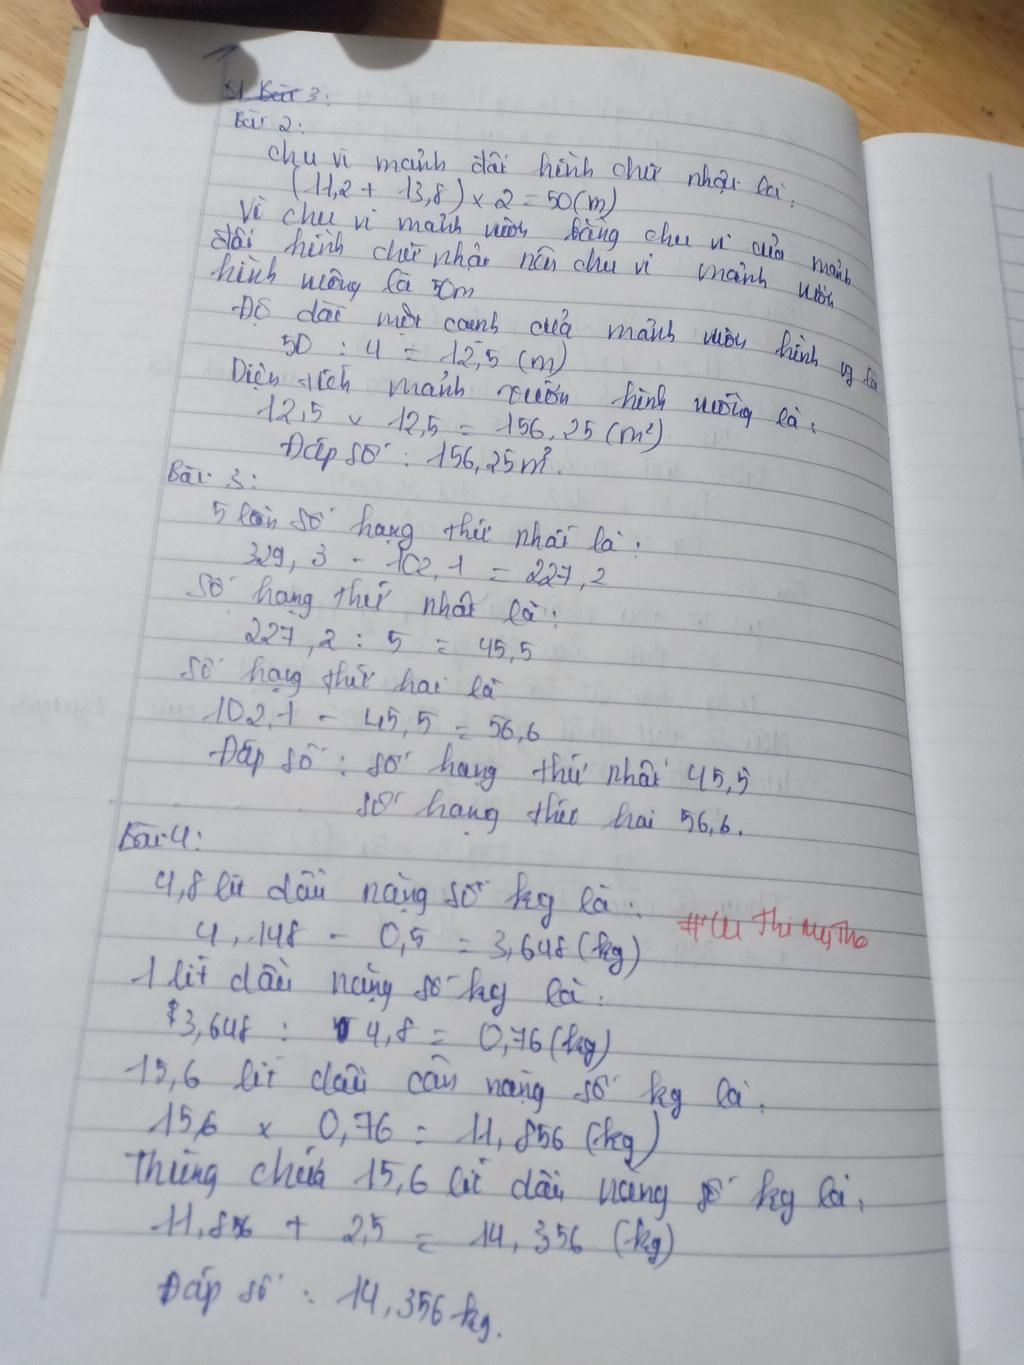 Bài 3:
Bài 2:
Chu vi mảnh đất hình chữ nhật là:
(11,2 + 13,8) x 2 = 50 (m)
Vì chu vi mảnh vườn bằng chu vi của mảnh
đất hình chữ nhật nên chu vi mảnh vườn
hình vuông là 50m
Độ dài một cạnh của mảnh vườn hình vg là
50 : 4 = 12,5 (m)
Diện tích mảnh vườn hình vuông là:
12,5 x 12,5 = 156,25 (m²)
Đáp số: 156,25m².
Bài 3:
5 lần số hạng thứ nhất là:
329,3 - 102,1 = 227,2
Số hạng thứ nhất là:
227,2 : 5 = 45,5
Số hạng thứ hai là
102,1 - 45,5 = 56,6
Đáp số: số hạng thứ nhất 45,5
số hạng thứ hai 56,6.
Bài 4:
4,8 lít dầu nặng số kg là:
4,148 - 0,5 = 3,648 (kg)
1 lít dầu nặng số kg là:
3,648 : 4,8 = 0,76 (kg)
15,6 lít dầu cân nặng số kg là:
15,6 x 0,76 = 11,856 (kg)
Thùng chứa 15,6 lít dầu nặng số kg là:
11,856 + 2,5 = 14,356 (kg)
Đáp số: 14,356 kg.